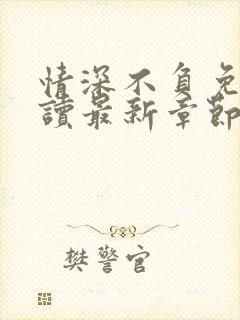 情深不負免
讀最新章節
樊警官